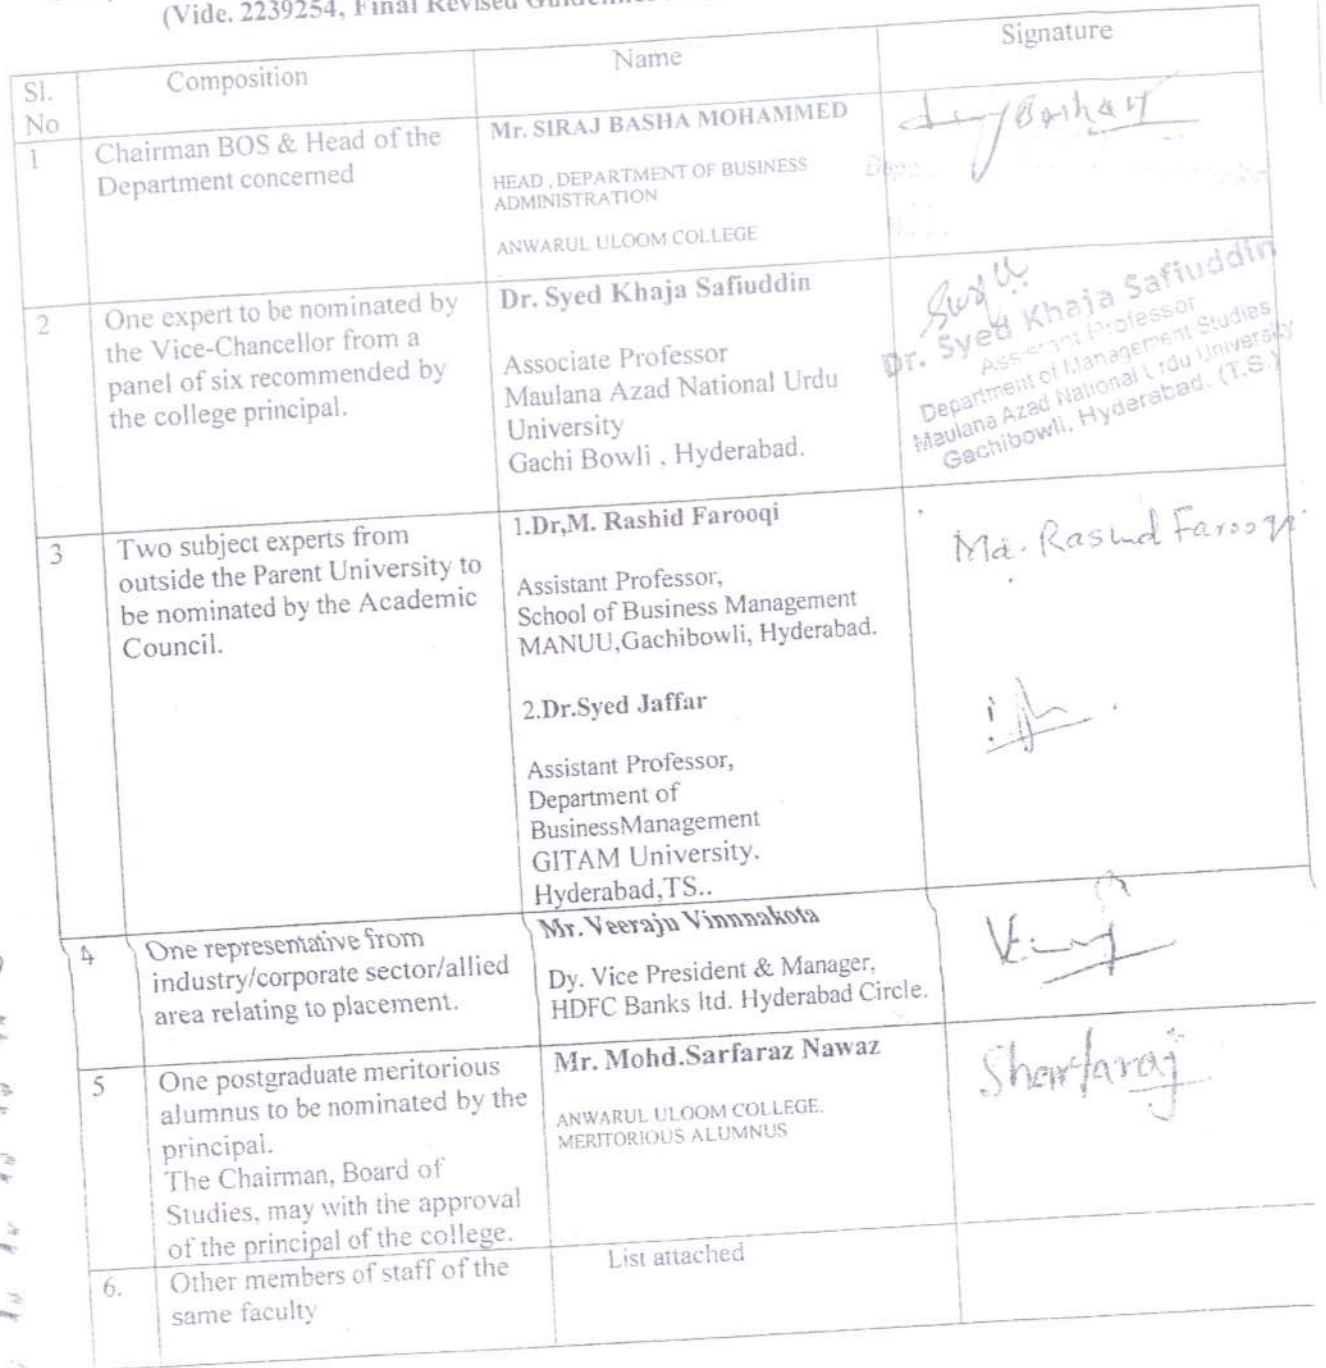 (Vide. 2239254, Final Revised
Sl.
No
Composition
Name
Signature
1
Chairman BOS & Head of the
Department concerned
Mr. SIRAJ BASHA MOHAMMED
HEAD , DEPARTMENT OF BUSINESS
ADMINISTRATION
ANWARUL ULOOM COLLEGE
2
One expert to be nominated by
the Vice-Chancellor from a
panel of six recommended by
the college principal.
Dr. Syed Khaja Safiuddin
Associate Professor
Maulana Azad National Urdu
University
Gachi Bowli , Hyderabad.
Dr. Syed Khaja Safiuddin
Assistant Professor
Department of Management Studies
Maulana Azad National Urdu University
Gachibowli, Hyderabad. (T.S.)
3
Two subject experts from
outside the Parent University to
be nominated by the Academic
Council.
1.Dr,M. Rashid Farooqi
Assistant Professor,
School of Business Management
MANUU,Gachibowli, Hyderabad.
Md. Rashid Farooqi
2.Dr.Syed Jaffar
Assistant Professor,
Department of
BusinessManagement
GITAM University.
Hyderabad,TS..
4
One representative from
industry/corporate sector/allied
area relating to placement.
Mr. Veeraju Vinnnakota
Dy. Vice President & Manager,
HDFC Banks ltd. Hyderabad Circle.
5
One postgraduate meritorious
alumnus to be nominated by the
principal.
The Chairman, Board of
Studies, may with the approval
of the principal of the college.
Mr. Mohd.Sarfaraz Nawaz
ANWARUL ULOOM COLLEGE.
MERITORIOUS ALUMNUS
6.
Other members of staff of the
same faculty
List attached